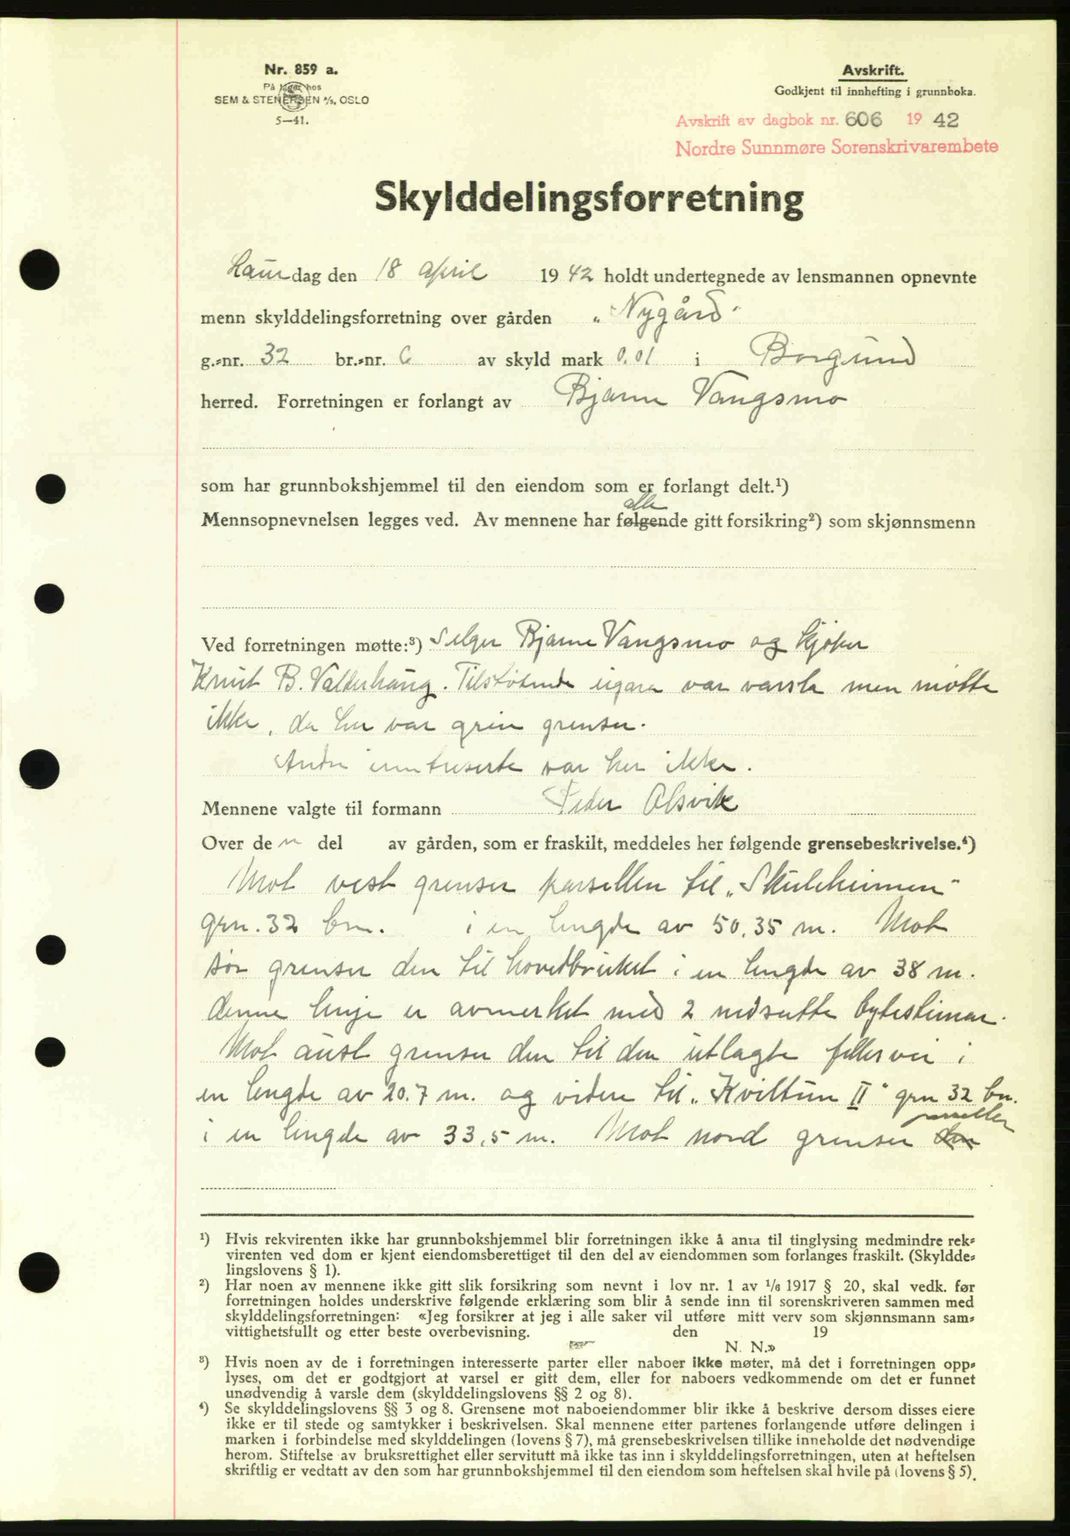 Nr. 859 a.
På lager hos
SEM & STENERSEN A/S, OSLO
5—41.
Avskrift.
Godkjent til innhefting i grunnboka.
Avskrift av dagbok nr. 606 1942
Nordre Sunnmøre Sorenskrivarembete
Skylddelingsforretning
Laurdag den 18 april 1942 holdt undertegnede av lensmannen opnevnte
menn skylddelingsforretning over gården „Nygård"
g.-nr. 32 br.-nr. 6 av skyld mark 0.01 i Borgund
herred. Forretningen er forlangt av Bjarne Vangsmo
som har grunnbokshjemmel til den eiendom som er forlangt delt.¹)
alle
Mennsopnevnelsen legges ved. Av mennene har følgende gitt forsikring²) som skjønnsmenn
Ved forretningen møtte:³) Selger Bjarne Vangsmo og kjøper
Knut B. Valderhaug. Tilstøtende eigara var varsla men møtte
ikke, da her var grein grenser.
Andre interesserte var her ikke.
Mennene valgte til formann Peder Alsvik
Over den del av gården, som er fraskilt, meddeles her følgende grensebeskrivelse.⁴)
Mot vest grenser parsellen til „Skuleheimen"
grn. 32 bn. i en lengde av 50.35 m. Mot
sør grenser den til hovedbruket i en lengde av 38 m.
denne linje er avmerket med 2 nedsatte bytesteinar.
Mot aust grenser den til den utlagte fellesvei i
en lengde av 20.7 m. og videre til „Kviltun II" grn 32 bn.
i en lengde av 33,5 m. Mot nord grenser den
parsellen
¹) Hvis rekvirenten ikke har grunnbokshjemmel blir forretningen ikke å anta til tinglysing medmindre rek-
virenten ved dom er kjent eiendomsberettiget til den del av eiendommen som forlanges fraskilt. (Skyldde-
lingslovens § 1).
²) Har noen av mennene ikke gitt slik forsikring som nevnt i lov nr. 1 av ¹/₆ 1917 § 20, skal vedk. før
forretningen holdes underskrive følgende erklæring som blir å sende inn til sorenskriveren sammen med
skylddelingsforretningen: «Jeg forsikrer at jeg i alle saker vil utføre mitt verv som skjønnsmann sam-
vittighetsfullt og etter beste overbevisning. den 19
N. N.»
³) Hvis noen av de i forretningen interesserte parter eller naboer ikke møter, må det i forretningen opp-
lyses, om det er godtgjort at varsel er gitt dem, eller for naboers vedkommende om det er funnet
unødvendig å varsle dem (skylddelingslovens §§ 2 og 8).
⁴) Se skylddelingslovens §§ 3 og 8. Grensene mot naboeiendommer blir ikke å beskrive dersom disses eiere
ikke er til stede og samtykker i beskrivelsen. Skal mennene etter partenes forlangende utføre delingen i
marken i forbindelse med skylddelingen (lovens § 7), må grensebeskrivelsen tillike inneholde det nødvendige
herom. Stiftelse av bruksrettighet eller servitutt må ikke tas inn i skylddelingsforretningen, uten at heftelsen
skriftlig er vedtatt av den som har grunnbokshjemmel til den eiendom som heftelsen skal hvile på (lovens § 5).